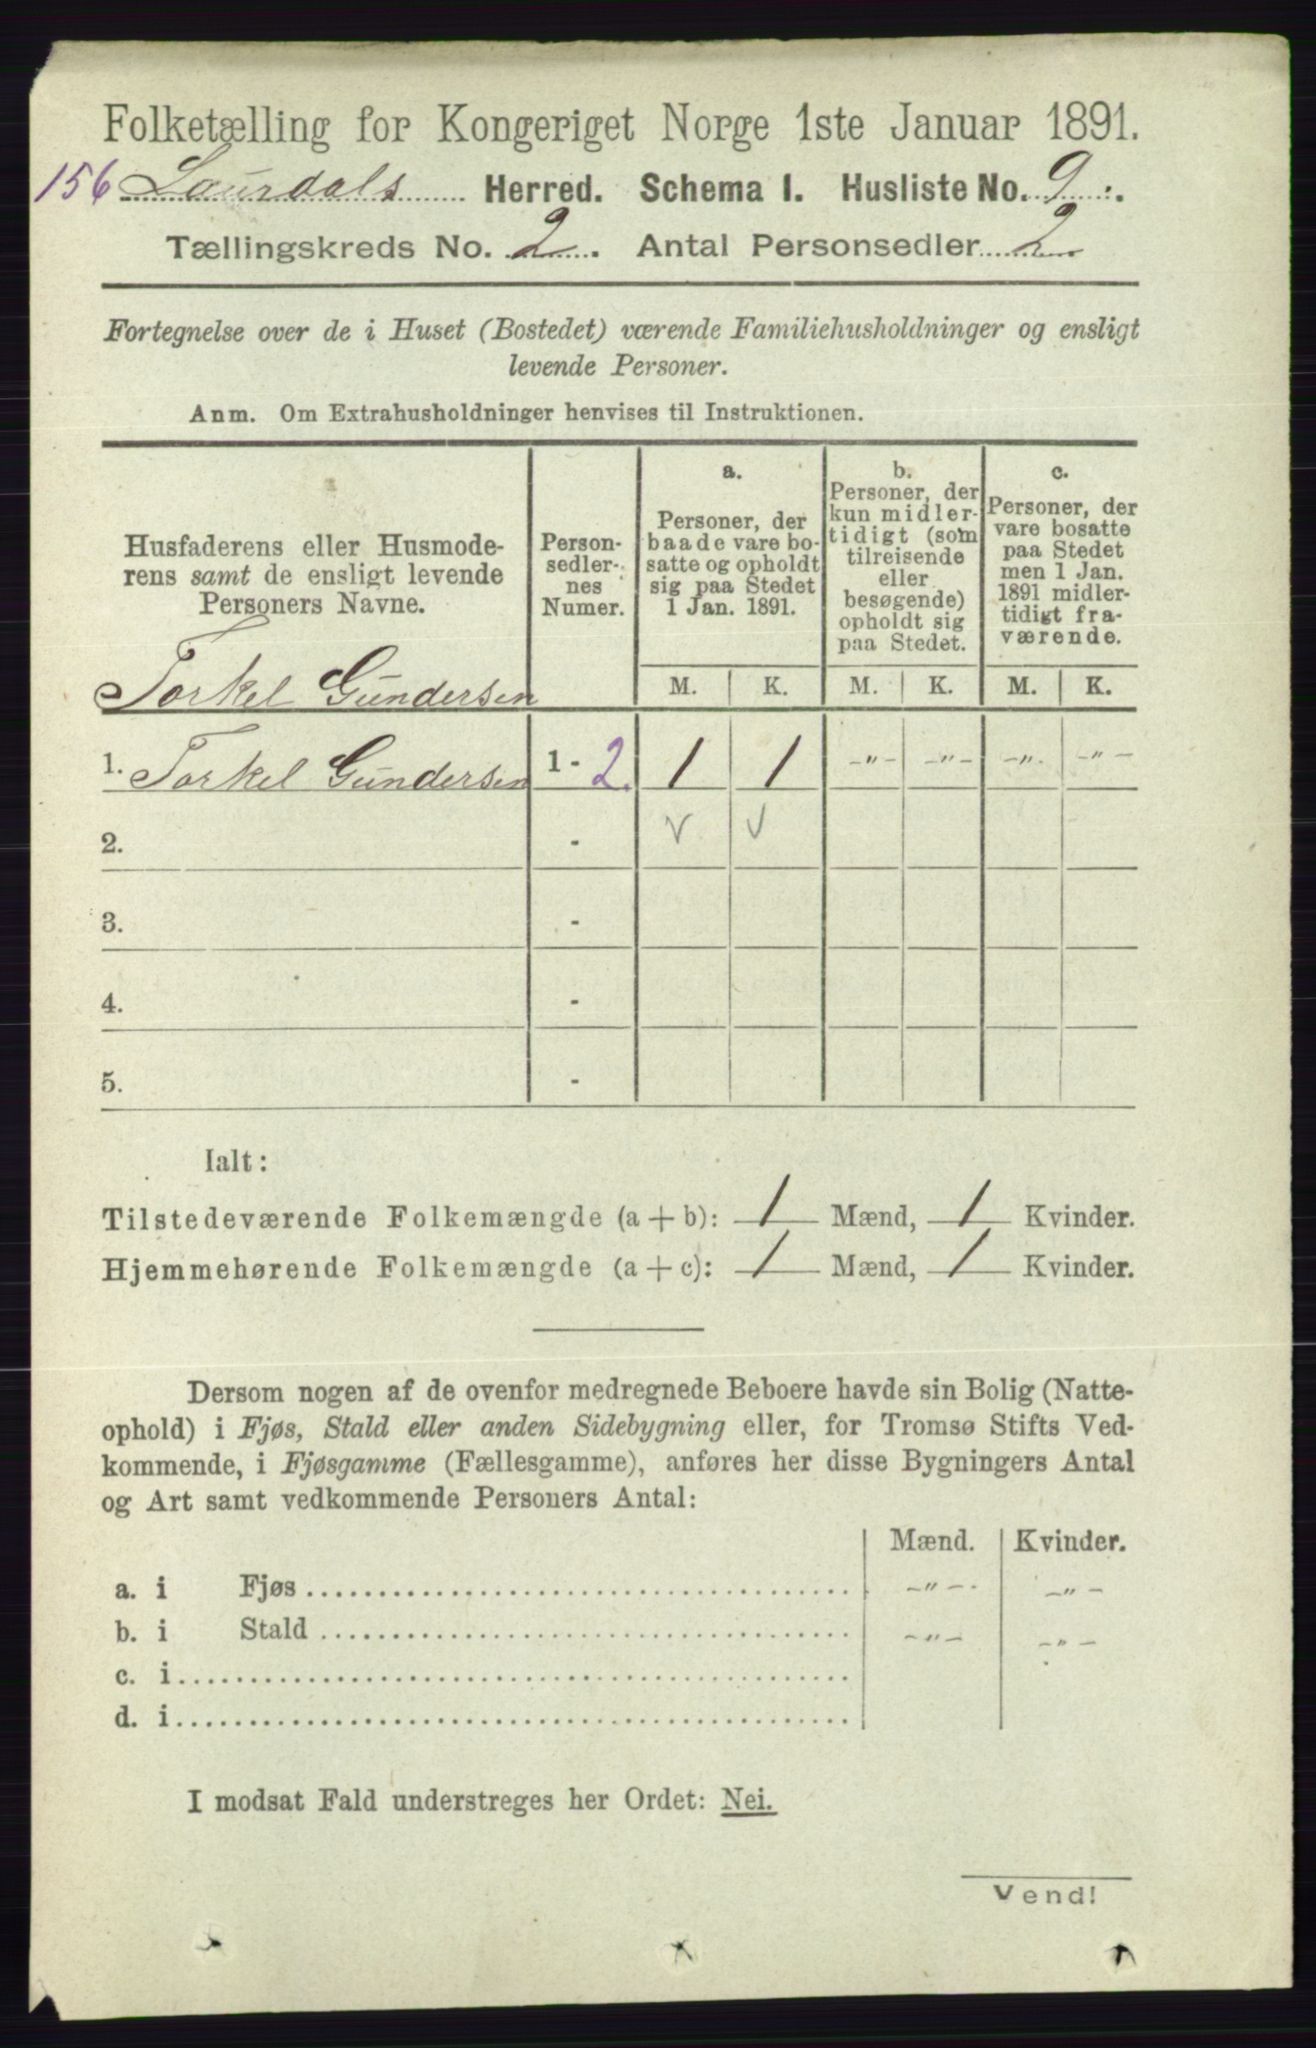 Folketælling for Kongeriget Norge 1ste Januar 1891.
156 Laurdals Herred. Schema I. Husliste No. 9.
Tællingskreds No. 2. Antal Personsedler 2
Fortegnelse over de i Huset (Bostedet) værende Familiehusholdninger og ensligt
levende Personer.
Anm. Om Extrahusholdninger henvises til Instruktionen.
Husfaderens eller Husmode-
rens samt de ensligt levende
Personers Navne.
Person-
sedler-
nes
Numer.
a.
Personer, der
baade vare bo-
satte og opholdt
sig paa Stedet
1 Jan. 1891.
b.
Personer, der
kun midler-
tidigt (som
tilreisende
eller
besøgende)
opholdt sig
paa Stedet.
c.
Personer, der
vare bosatte
paa Stedet
men 1 Jan.
1891 midler-
tidigt fra-
værende.
M. K. M. K. M. K.
Torkel Gundersen
1. Torkel Gundersen 1 - 2. 1 1 -"- -"- -"- -"-
2. - v v
3. -
4. -
5. -
Ialt:
Tilstedeværende Folkemængde (a + b): 1 Mænd, 1 Kvinder.
Hjemmehørende Folkemængde (a + c): 1 Mænd, 1 Kvinder.
Dersom nogen af de ovenfor medregnede Beboere havde sin Bolig (Natte-
ophold) i Fjøs, Stald eller anden Sidebygning eller, for Tromsø Stifts Ved-
kommende, i Fjøsgamme (Fællesgamme), anføres her disse Bygningers Antal
og Art samt vedkommende Personers Antal:
Mænd. Kvinder.
a. i Fjøs -"- -"-
b. i Stald -"- -"-
c. i
d. i
I modsat Fald understreges her Ordet: Nei.
Vend!